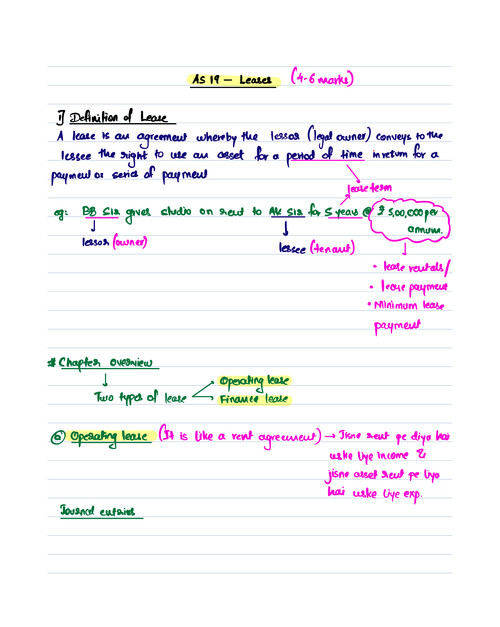 AS 19 – Leases (4-6 marks)
1) Definition of Lease
A lease is an agreement whereby the lessor (legal owner) conveys to the
lessee the right to use an asset for a period of time in return for a
payment or series of payment
lease term
eg: BB Sir gives studio on rent to AK Sir for 5 years @ ₹ 5,00,000 per
annum.
lessor (owner)
lessee (tenant)
• lease rentals/
• lease payment
• Minimum lease
payment
# Chapter overview
Two types of lease
Operating lease
Finance lease
(a) Operating lease (It is like a rent agreement) → Jisne rent pe diya hai
uske liye income &
jisne asset rent pe liya
hai uske liye exp.
Journal entries